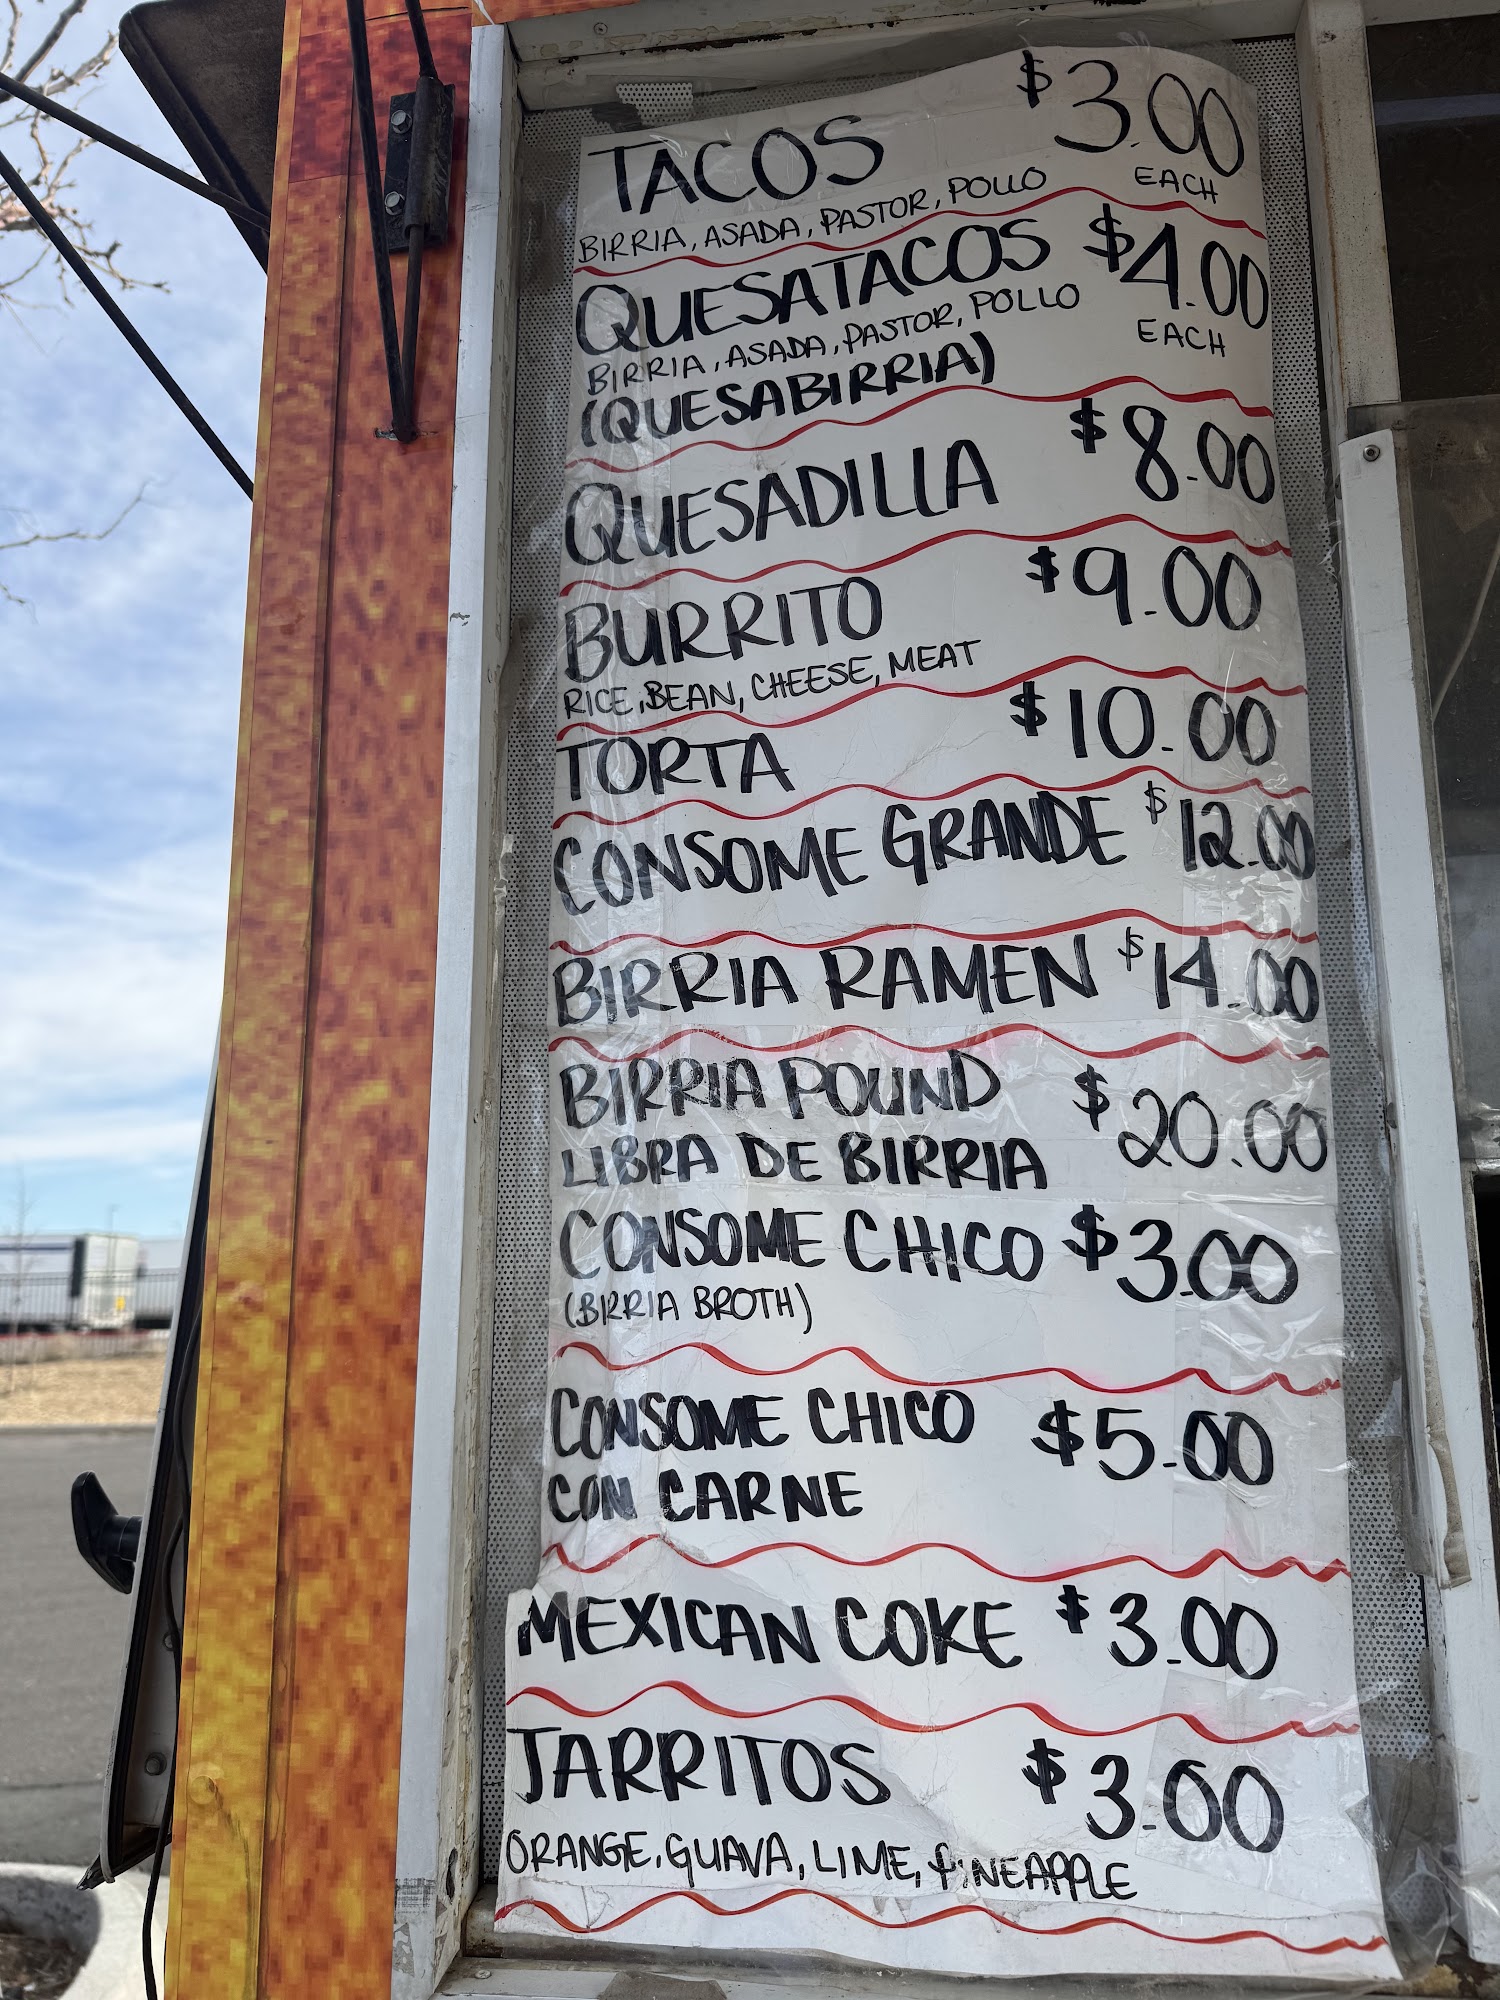 TACOS $3.00
BIRRIA, ASADA, PASTOR, POLLO EACH
QUESATACOS $4.00
BIRRIA, ASADA, PASTOR, POLLO EACH
(QUESABIRRIA)
QUESADILLA $8.00
BURRITO $9.00
RICE, BEAN, CHEESE, MEAT
TORTA $10.00
CONSOME GRANDE $12.00
BIRRIA RAMEN $14.00
BIRRIA POUND $20.00
LIBRA DE BIRRIA
CONSOME CHICO $3.00
(BIRRIA BROTH)
CONSOME CHICO $5.00
CON CARNE
MEXICAN COKE $3.00
JARRITOS $3.00
ORANGE, GUAVA, LIME, PINEAPPLE